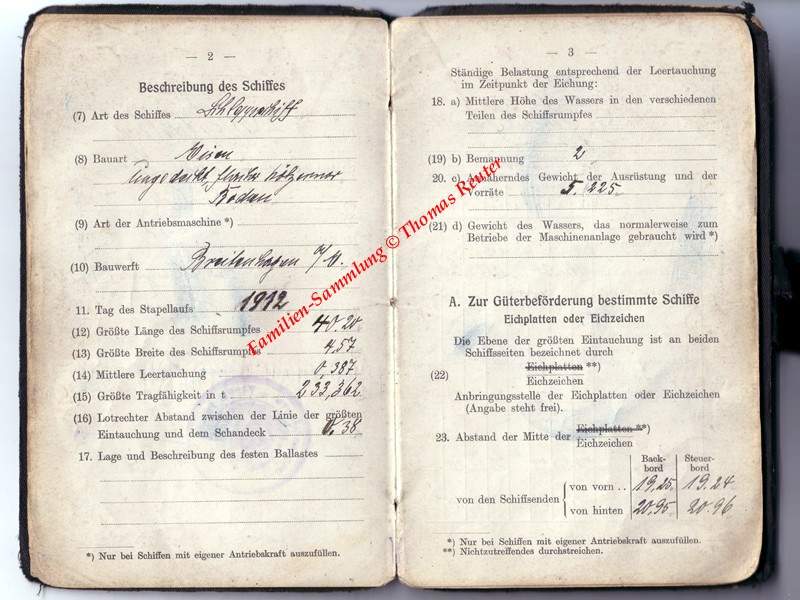 — 2 —
Beschreibung des Schiffes
(7) Art des Schiffes Schleppschiff
(8) Bauart Eisen
Boden
(9) Art der Antriebsmaschine *)
(10) Bauwerft Breitenhagen
11. Tag des Stapellaufs 1912
(12) Größte Länge des Schiffsrumpfes 40.20
(13) Größte Breite des Schiffsrumpfes 4,57
(14) Mittlere Leertauchung 0,387
(15) Größte Tragfähigkeit in t 233,362
(16) Lotrechter Abstand zwischen der Linie der größten
Eintauchung und dem Schandeck 0.38
17. Lage und Beschreibung des festen Ballastes
*) Nur bei Schiffen mit eigener Antriebskraft auszufüllen.
— 3 —
Ständige Belastung entsprechend der Leertauchung
im Zeitpunkt der Eichung:
18. a) Mittlere Höhe des Wassers in den verschiedenen
Teilen des Schiffsrumpfes
(19) b) Bemannung 2
20. c) Annäherndes Gewicht der Ausrüstung und der
Vorräte 5.225.
(21) d) Gewicht des Wassers, das normalerweise zum
Betriebe der Maschinenanlage gebraucht wird *)
A. Zur Güterbeförderung bestimmte Schiffe
Eichplatten oder Eichzeichen
Die Ebene der größten Eintauchung ist an beiden
Schiffsseiten bezeichnet durch
(22) Eichplatten **)
Eichzeichen
Anbringungsstelle der Eichplatten oder Eichzeichen
(Angabe steht frei).
23. Abstand der Mitte der Eichplatten **)
Eichzeichen
Backbord Steuerbord
von den Schiffsenden
von vorn .. 19,25. 19.24
von hinten 20.95 20.96
*) Nur bei Schiffen mit eigener Antriebskraft auszufüllen.
**) Nichtzutreffendes durchstreichen.
Familien-Sammlung © Thomas Reuter